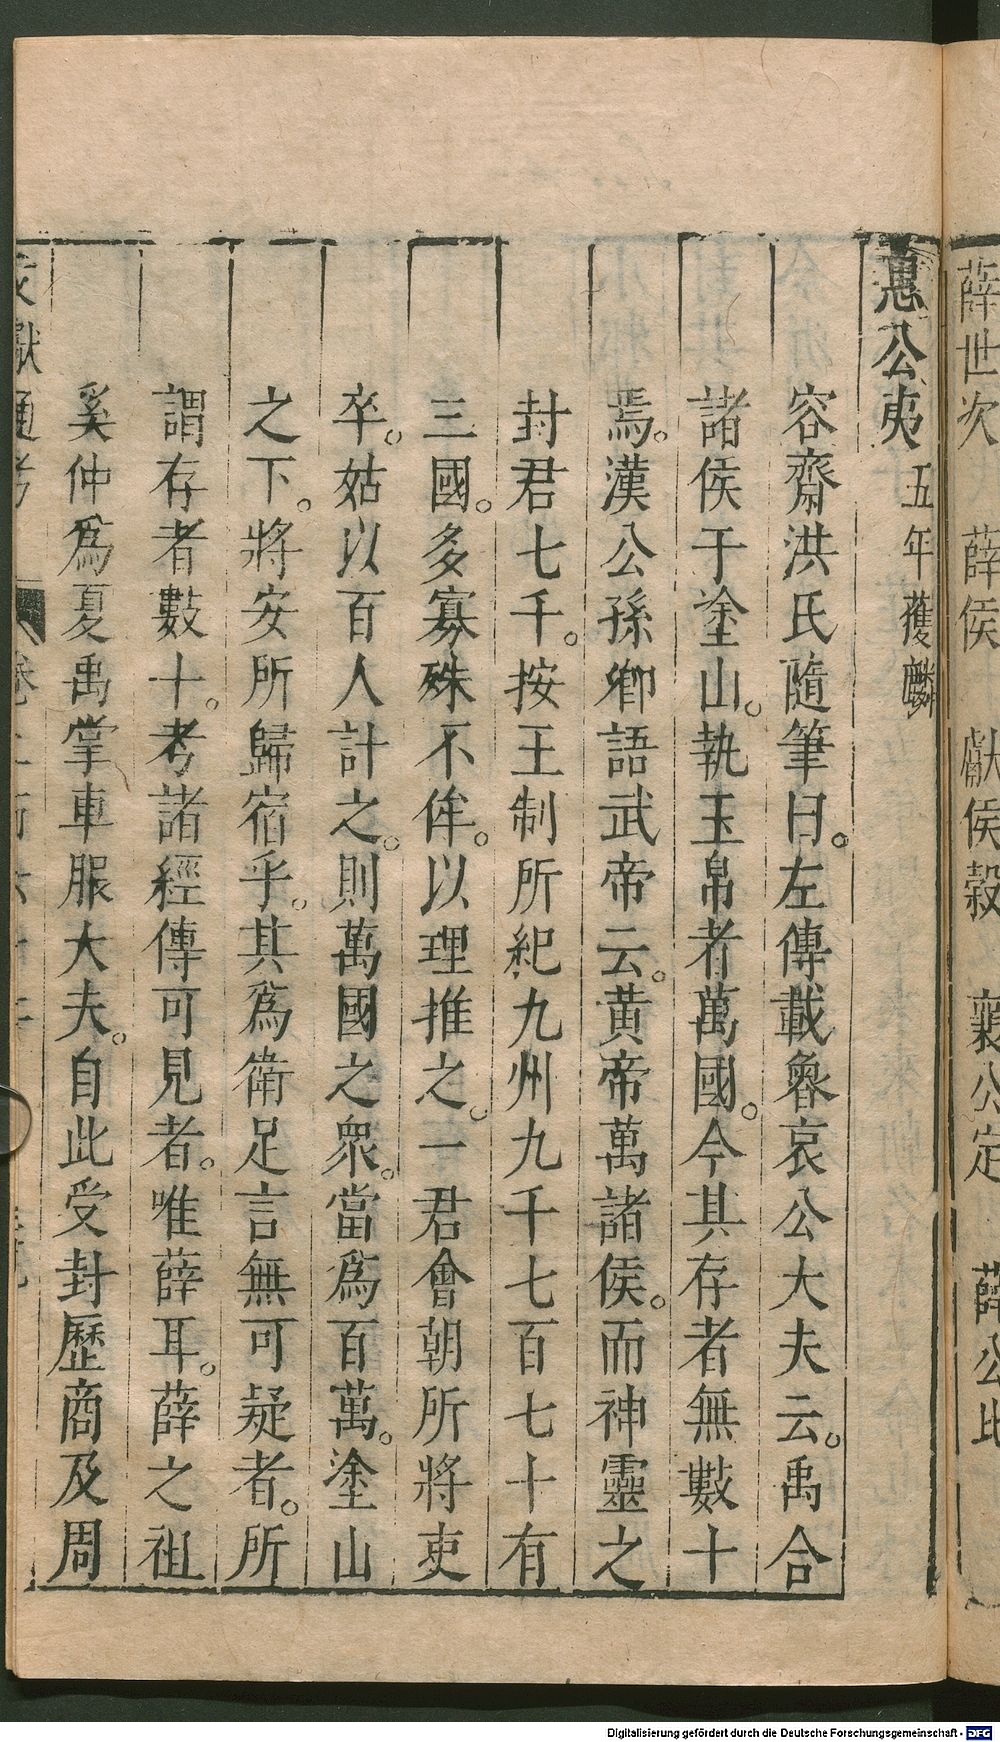 薛世次　薛侯　獻侯穀　襄公定　薛公比
惠公夷　五年獲麟
容齋洪氏隨筆曰。左傳載魯哀公大夫云。禹合
諸侯于塗山。執玉帛者萬國。今其存者無數十
焉。漢公孫卿語武帝云。黃帝萬諸侯。而神靈之
封君七千。按王制所紀九州九千七百七十有
三國。多寡殊不侔。以理推之。一君會朝所將吏
卒。姑以百人計之。則萬國之衆。當爲百萬。塗山
之下。將安所歸宿乎。其爲衛足言無可疑者。所
謂存者數十。考諸經傳可見者。唯薛耳。薛之祖
奚仲爲夏禹掌車服大夫。自此受封歷商及周
文獻通考
Digitalisierung gefördert durch die Deutsche Forschungsgemeinschaft - DFG